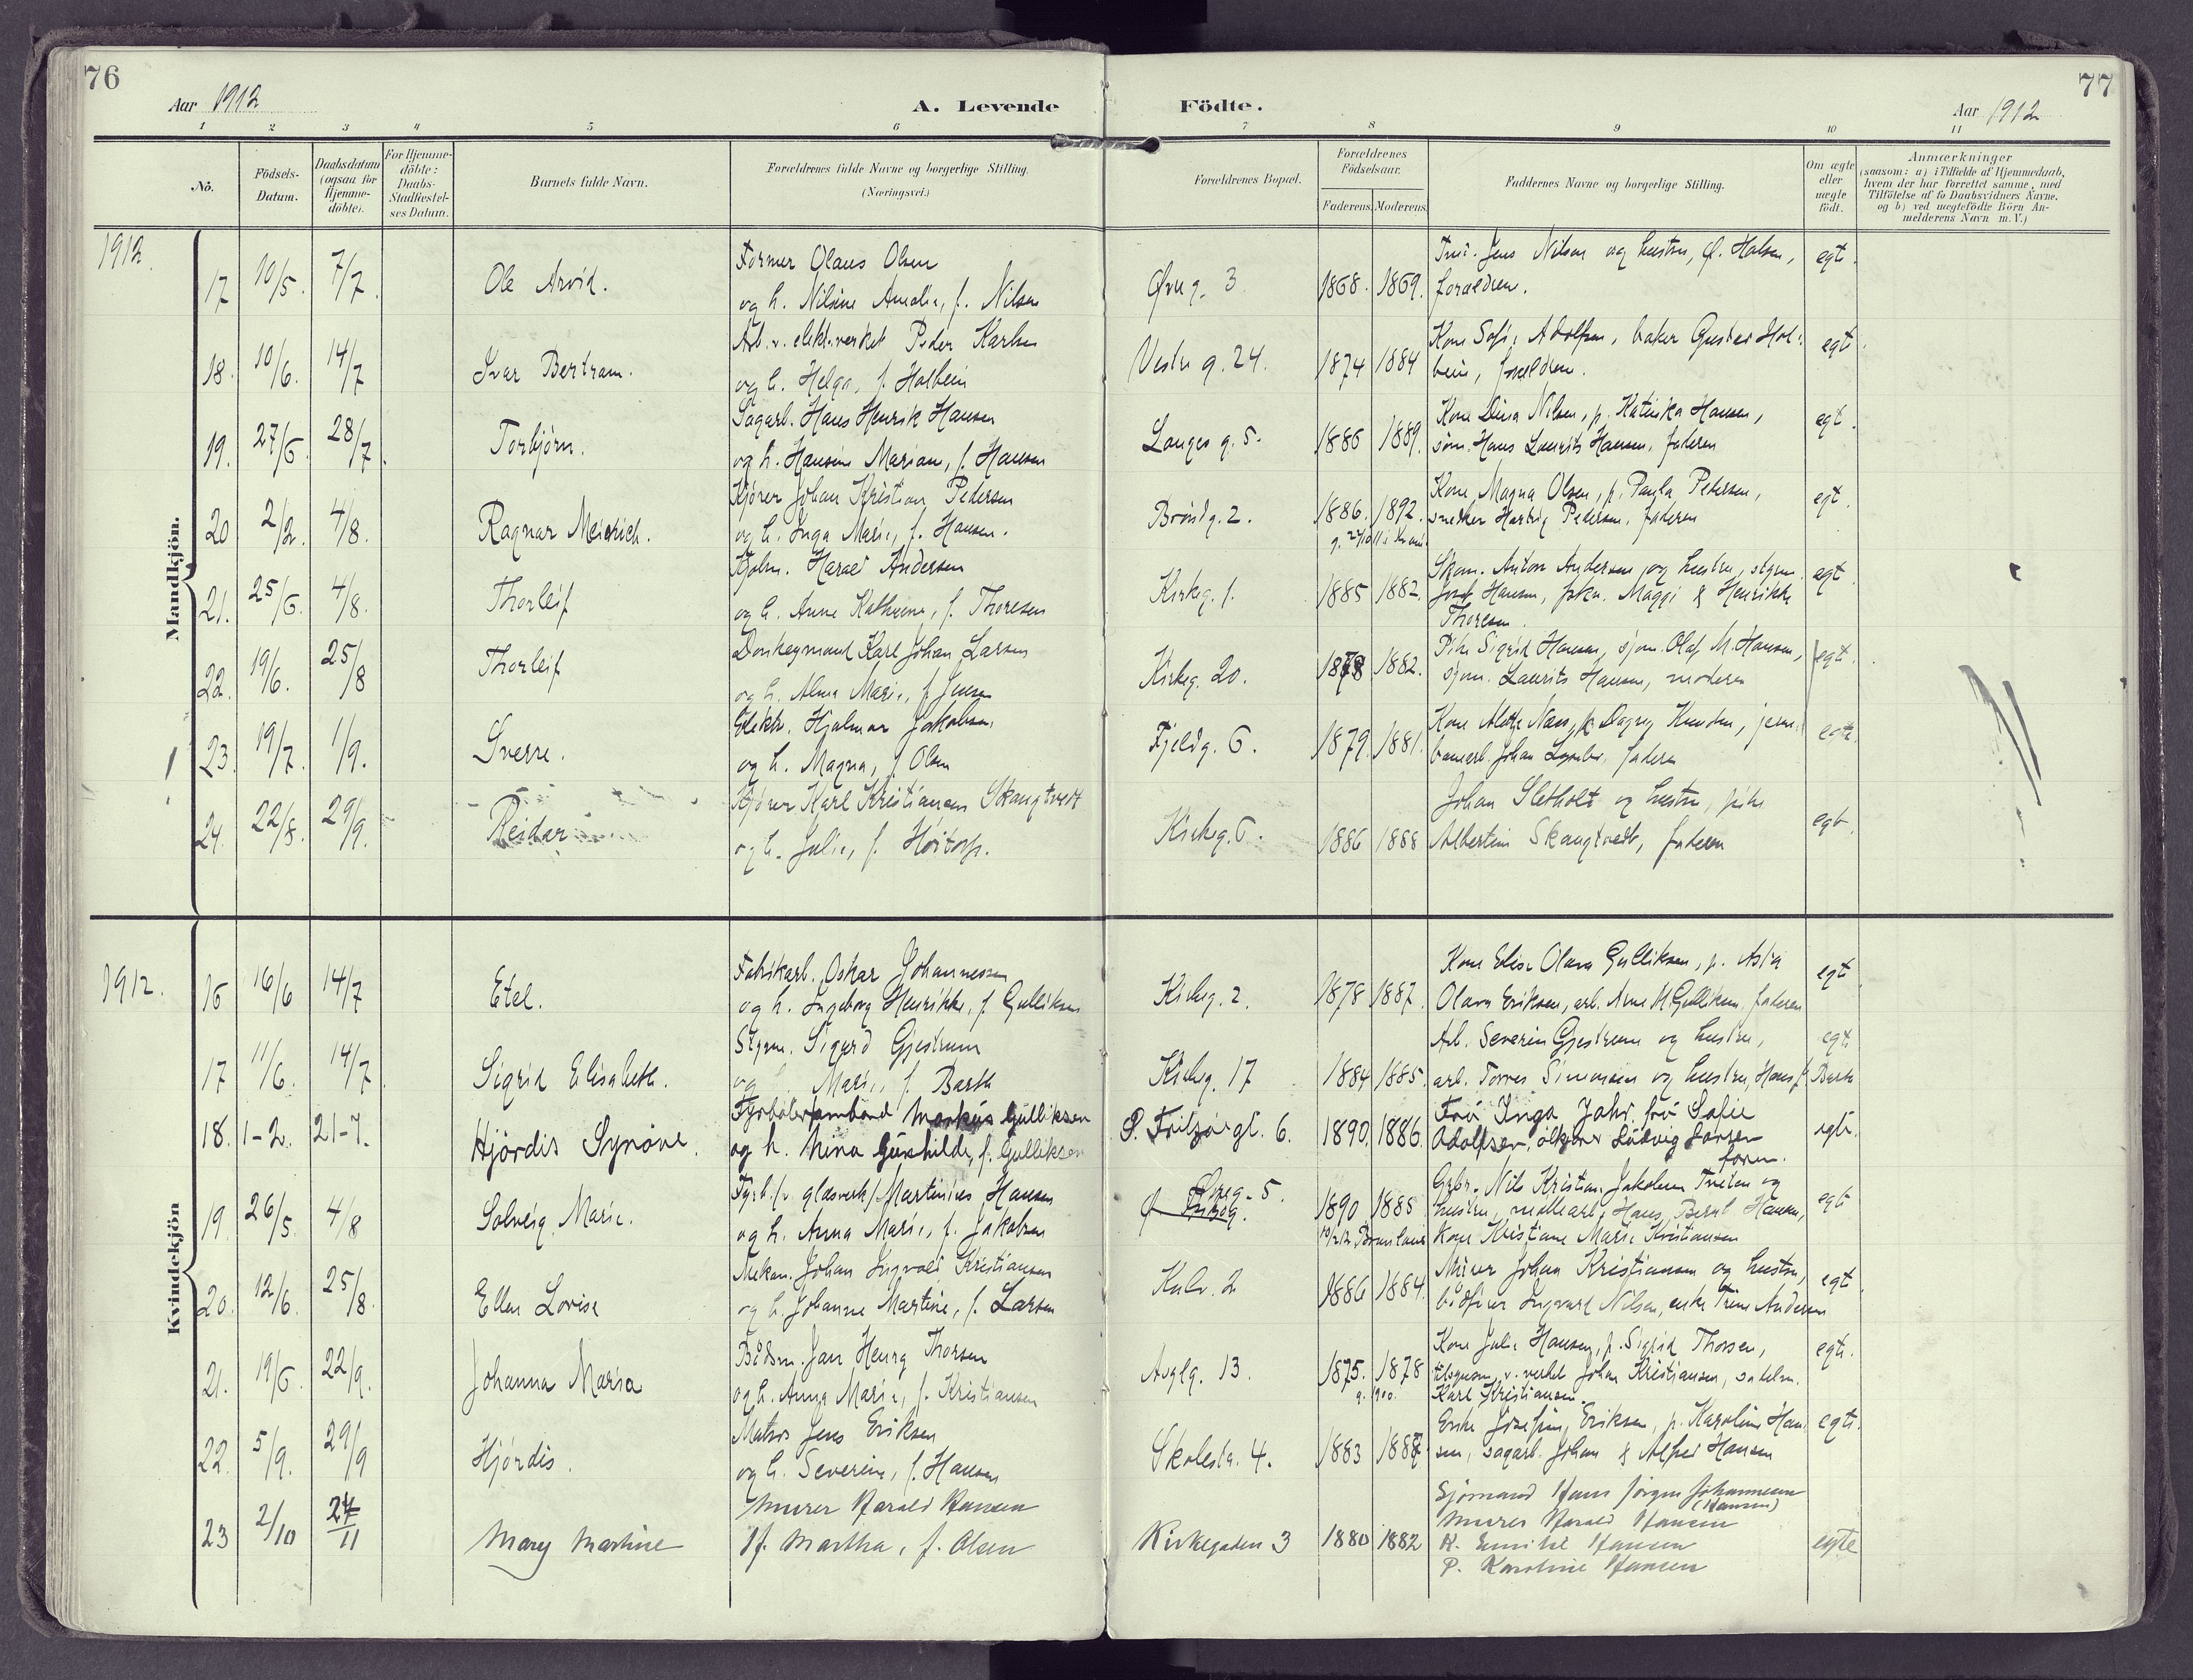 76
77
Aar 1912
A. Levende Födte.
Aar 1912
1 2 3 4 5 6 7 8 9 10 11
Nö.
Födsels-
Datum.
Daabsdatum
(ogsaa for
Hjemme-
döbte).
For Hjemme-
döbte:
Daabs-
Stadfæstel-
ses Datum.
Barnets fulde Navn.
Forældrenes fulde Navne og borgerlige Stilling.
(Næringsvei.)
Forældrenes Bopæl.
Forældrenes
Födselsaar.
Faderens. Moderens.
Faddernes Navne og borgerlige Stilling.
Om ægte
eller
uægte
födt.
Anmærkninger
(saasom: a) i Tilfælde af Hjemmedaab,
hvem der har forrettet samme, med
Tilföielse af to Daabsvidners Navne.
og b) ved uægtefödte Börn An-
melderens Navn m. V.)
Mandkjön.
1912.
17 10/5. 7/7. Ole Arvid.
Former Olaus Olsen
og h. Nilsine Amalie, f. Nilsen
Øvreg. 3 1868. 1869.
Jens Nilsen og hustru, Halsen,
forældrene.
egte.
18. 10/6. 14/7 Ivar Bertram.
Arb. v. elekt.verket Peder Karlsen
og h. Helga, f. Holbein
Vestre g. 24. 1874 1884
Kone Sofie Adolfsen, baker Gustav Hol-
bein, forældrene.
egt.
19. 27/6 28/7. Torbjörn.
Sagarb. Hans Henrik Hansen
og h. Hansine Marian, f. Hansen
Langes g. 5. 1886 1889.
Kone Dina Nilsen, p. Katinka Hansen,
söm. Hans Laurits Hansen, faderen
egt.
20 2/2. 4/8. Ragnar Meidrich.
Kjörer Johan Kristian Pedersen
og h. Inga Marie, f. Hansen.
Bröndg. 2. 1886. 1892.
Kone Magna Olsen, p. Paula Petersen,
snedker Hartvig Pedersen, faderen
egt.
21. 25/6. 4/8. Thorleif
Harald Andersen
og h. Anna Kathrine, f. Thoresen
Kirkeg. 1. 1885 1882.
Skom. Anton Andersen og hustru, styrm.
Josef Hansen, frkn. Maggi & Henrikke
Thoresen.
egt.
22. 19/6. 25/8 Thorleif
Donkeymand Karl Johan Larsen
og h. Alma Marie, f. Jensen
Kirkeg. 20. 1878 1882.
Pike Sigrid Hansen, sjöm. Olaf M. Hansen,
sjöm. Laurits Hansen, moderen
egt.
23. 19/7. 1/9. Sverre.
Elektr. Hjalmar Jakobsen
og h. Magna, f. Olsen
Fjeldg. 6. 1879. 1881.
Kone Alethe Næss, p. Dagny Knudsen, jern-
banearb. Johan faderen
egte.
24. 22/8. 29/9. Reidar
Kjörer Karl Kristiansen Skaugtvedt
og h. Julie, f. Höitorp.
Kirkeg. 6. 1886 1888
Johan Sletholt og hustru, pike
Albertine Skaugtvedt, faderen
egt.
Kvindekjön
1912.
16 16/6 14/7 Etel.
Fabrikarb. Oskar Johannessen
og h. Ingeborg Henrikke, f. Gulliksen
Kirkeg. 2. 1878 1887.
Kone Elise Olava Gulliksen, p. Asta
Olava Eriksen, arb. Arne M. Gulliksen, faderen
egt
17 11/6. 14/7 Sigrid Elisabeth.
Styrm. Sigurd Gjestrum
og Marie, f. Barth
Kirkeg. 17 1884 1885.
Arb. Severin Gjestrum og hustru,
arb. Torres Simonsen og hustru, Hans J. Barth
egt.
18. 1-2. 21-7. Hjördis Synöve.
Fyrböter Markus Gulliksen
og h. Nina Gunhilde, f. Gulliksen
S. Fritzöegt. 6. 1890. 1886.
Fru Inga Jahr, fru Sofie
Adolfsen, ölkjörer Ludvig Larsen
foræ.
egte.
19. 26/5. 4/8 Solveig Marie.
Fyrb. (v. glasverk) Martinius Hansen
og h. Anna Marie, f. Jakobsen
Öreg. 5. 1890 1885
Grbr. Nils Kristian Jakobsen Tveten og
hustru, möllearb. Hans Bernt Hansen,
Kone Kristiane Marie Kristiansen
egt
20. 12/6. 25/8. Ellen Lovise
Mekan. Johan Ingvald Kristiansen
og h. Johanne Martine, f. Larsen
Kalv. 2 1886 1884.
Murer Johan Kristiansen og hustru,
bödker Ingvard Nilsen, enke Trine Andersen
egt.
21. 19/6. 22/9. Johanna Maria
Bådsm. Jan Henry Thorsen
og h. Anna Marie, f. Kristiansen
13. 1875. 1878
Kone Julie Hansen, p. Sigrid Thorsen,
v. verket Johan Kristiansen, sadelm.
Karl Kristiansen
egte.
22. 5/9. 29/9 Hjördis.
Matros Jens Eriksen
og h. Severine, f. Hansen
Skolesta. 4. 1883 1887
Enke Josefine Eriksen, p. Karoline Han-
sen, sagarb. Johan & Alfred Hansen
egte.
23 2/10 24/11 Mary Martine
Murer Harald Hansen
Hf. Martha, f. Olsen
Kirkegaten 3 1880 1882
Sjömand Hans Jörgen Johannesen
(Hansen)
Murer Harald Hansen
K. Emilie Hansen
P. Karoline Hansen
egte